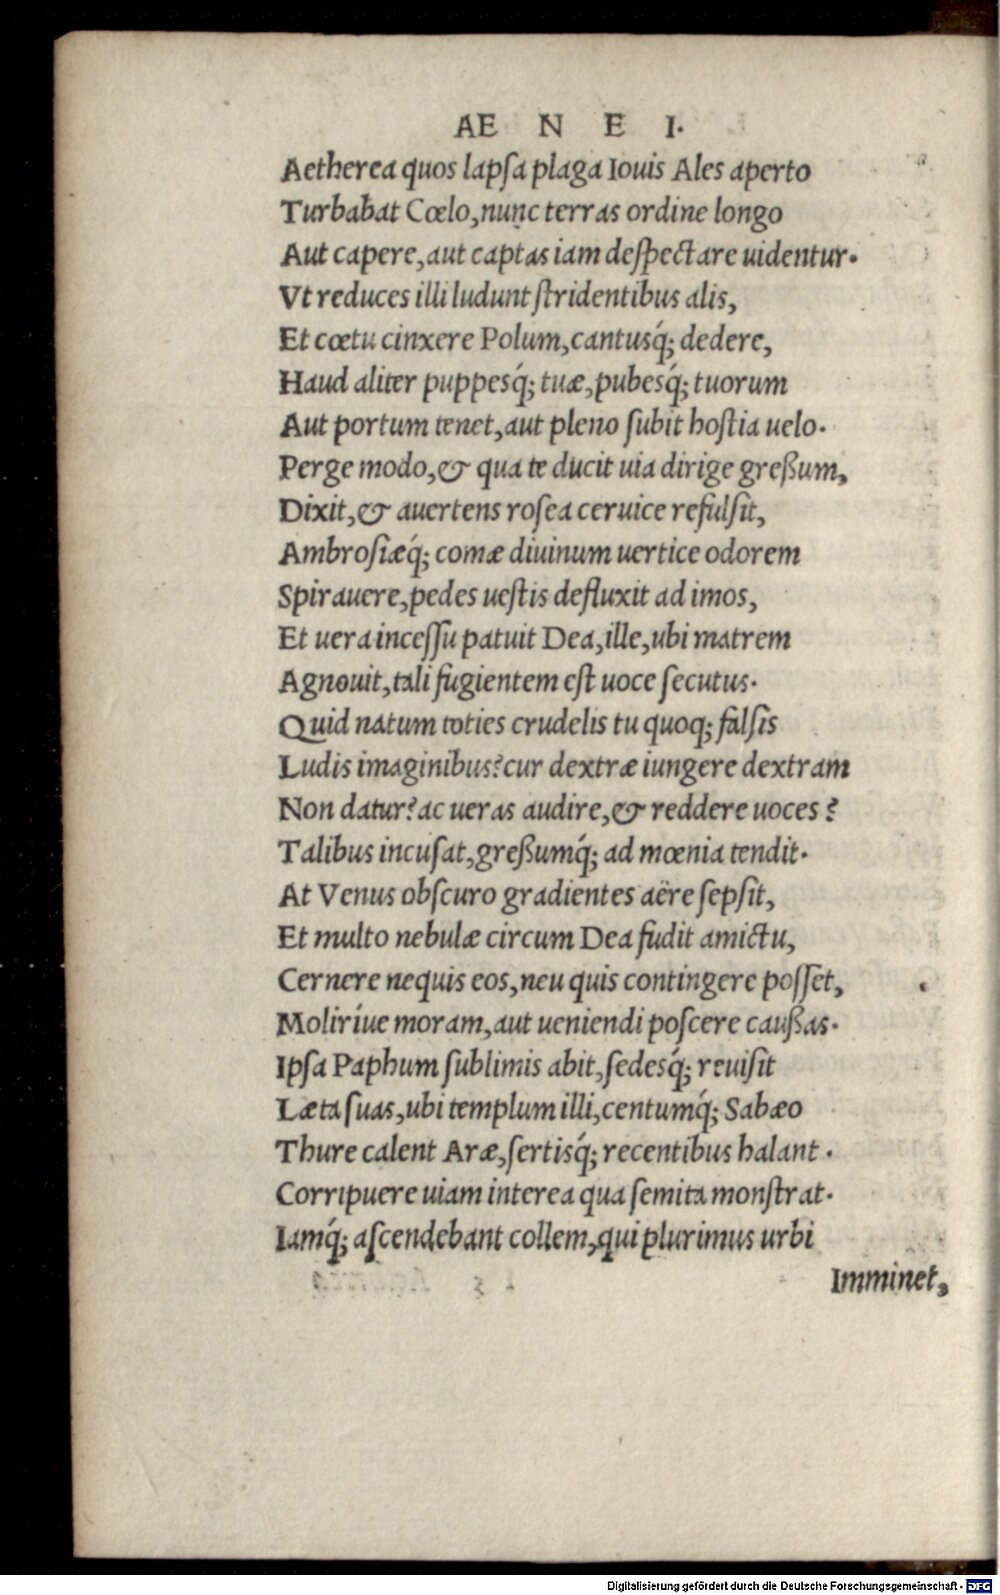 AE N E I.
Aetherea quos lapſa plaga Iouis Ales aperto
Turbabat Cœlo,nunc terras ordine longo
Aut capere,aut captas iam deſpectare uidentur.
Vt reduces illi ludunt ſtridentibus alis,
Et cœtu cinxere Polum,cantusq́; dedere,
Haud aliter puppesq́; tuæ,pubesq́; tuorum
Aut portum tenet,aut pleno ſubit hoſtia uelo.
Perge modo,& qua te ducit uia dirige greßum,
Dixit,& auertens roſea ceruice refulſit,
Ambroſiæq́; comæ diuinum uertice odorem
Spirauere,pedes ueſtis defluxit ad imos,
Et uera inceſſu patuit Dea,ille,ubi matrem
Agnouit,tali fugientem eſt uoce ſecutus.
Quid natum toties crudelis tu quoq; falſis
Ludis imaginibus?cur dextræ iungere dextram
Non datur?ac ueras audire,& reddere uoces?
Talibus incuſat,greßumq́; ad mœnia tendit.
At Venus obſcuro gradientes aëre ſepſit,
Et multo nebulæ circum Dea fudit amictu,
Cernere nequis eos,neu quis contingere poſſet,
Moliríue moram,aut ueniendi poſcere caußas.
Ipſa Paphum ſublimis abit,ſedesq́; reuiſit
Læta ſuas,ubi templum illi,centumq́; Sabæo
Thure calent Aræ,ſertisq́; recentibus halant.
Corripuere uiam interea qua ſemita monſtrat.
Iamq́; aſcendebant collem,qui plurimus urbi
Imminet,
Digitalisierung gefördert durch die Deutsche Forschungsgemeinschaft - DFG